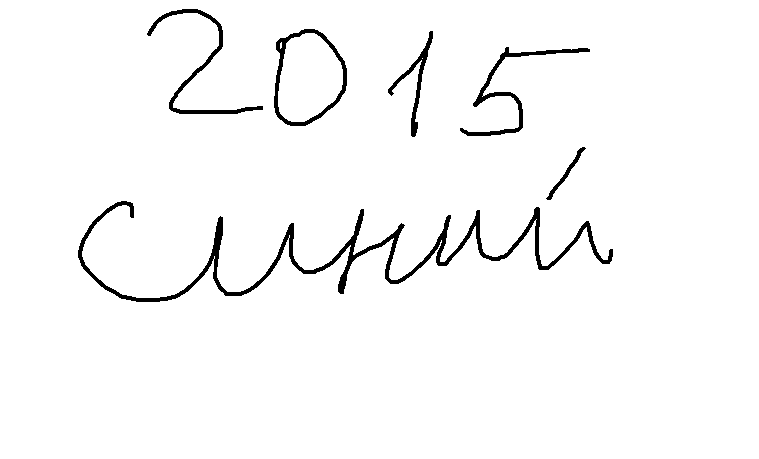 2015
синий